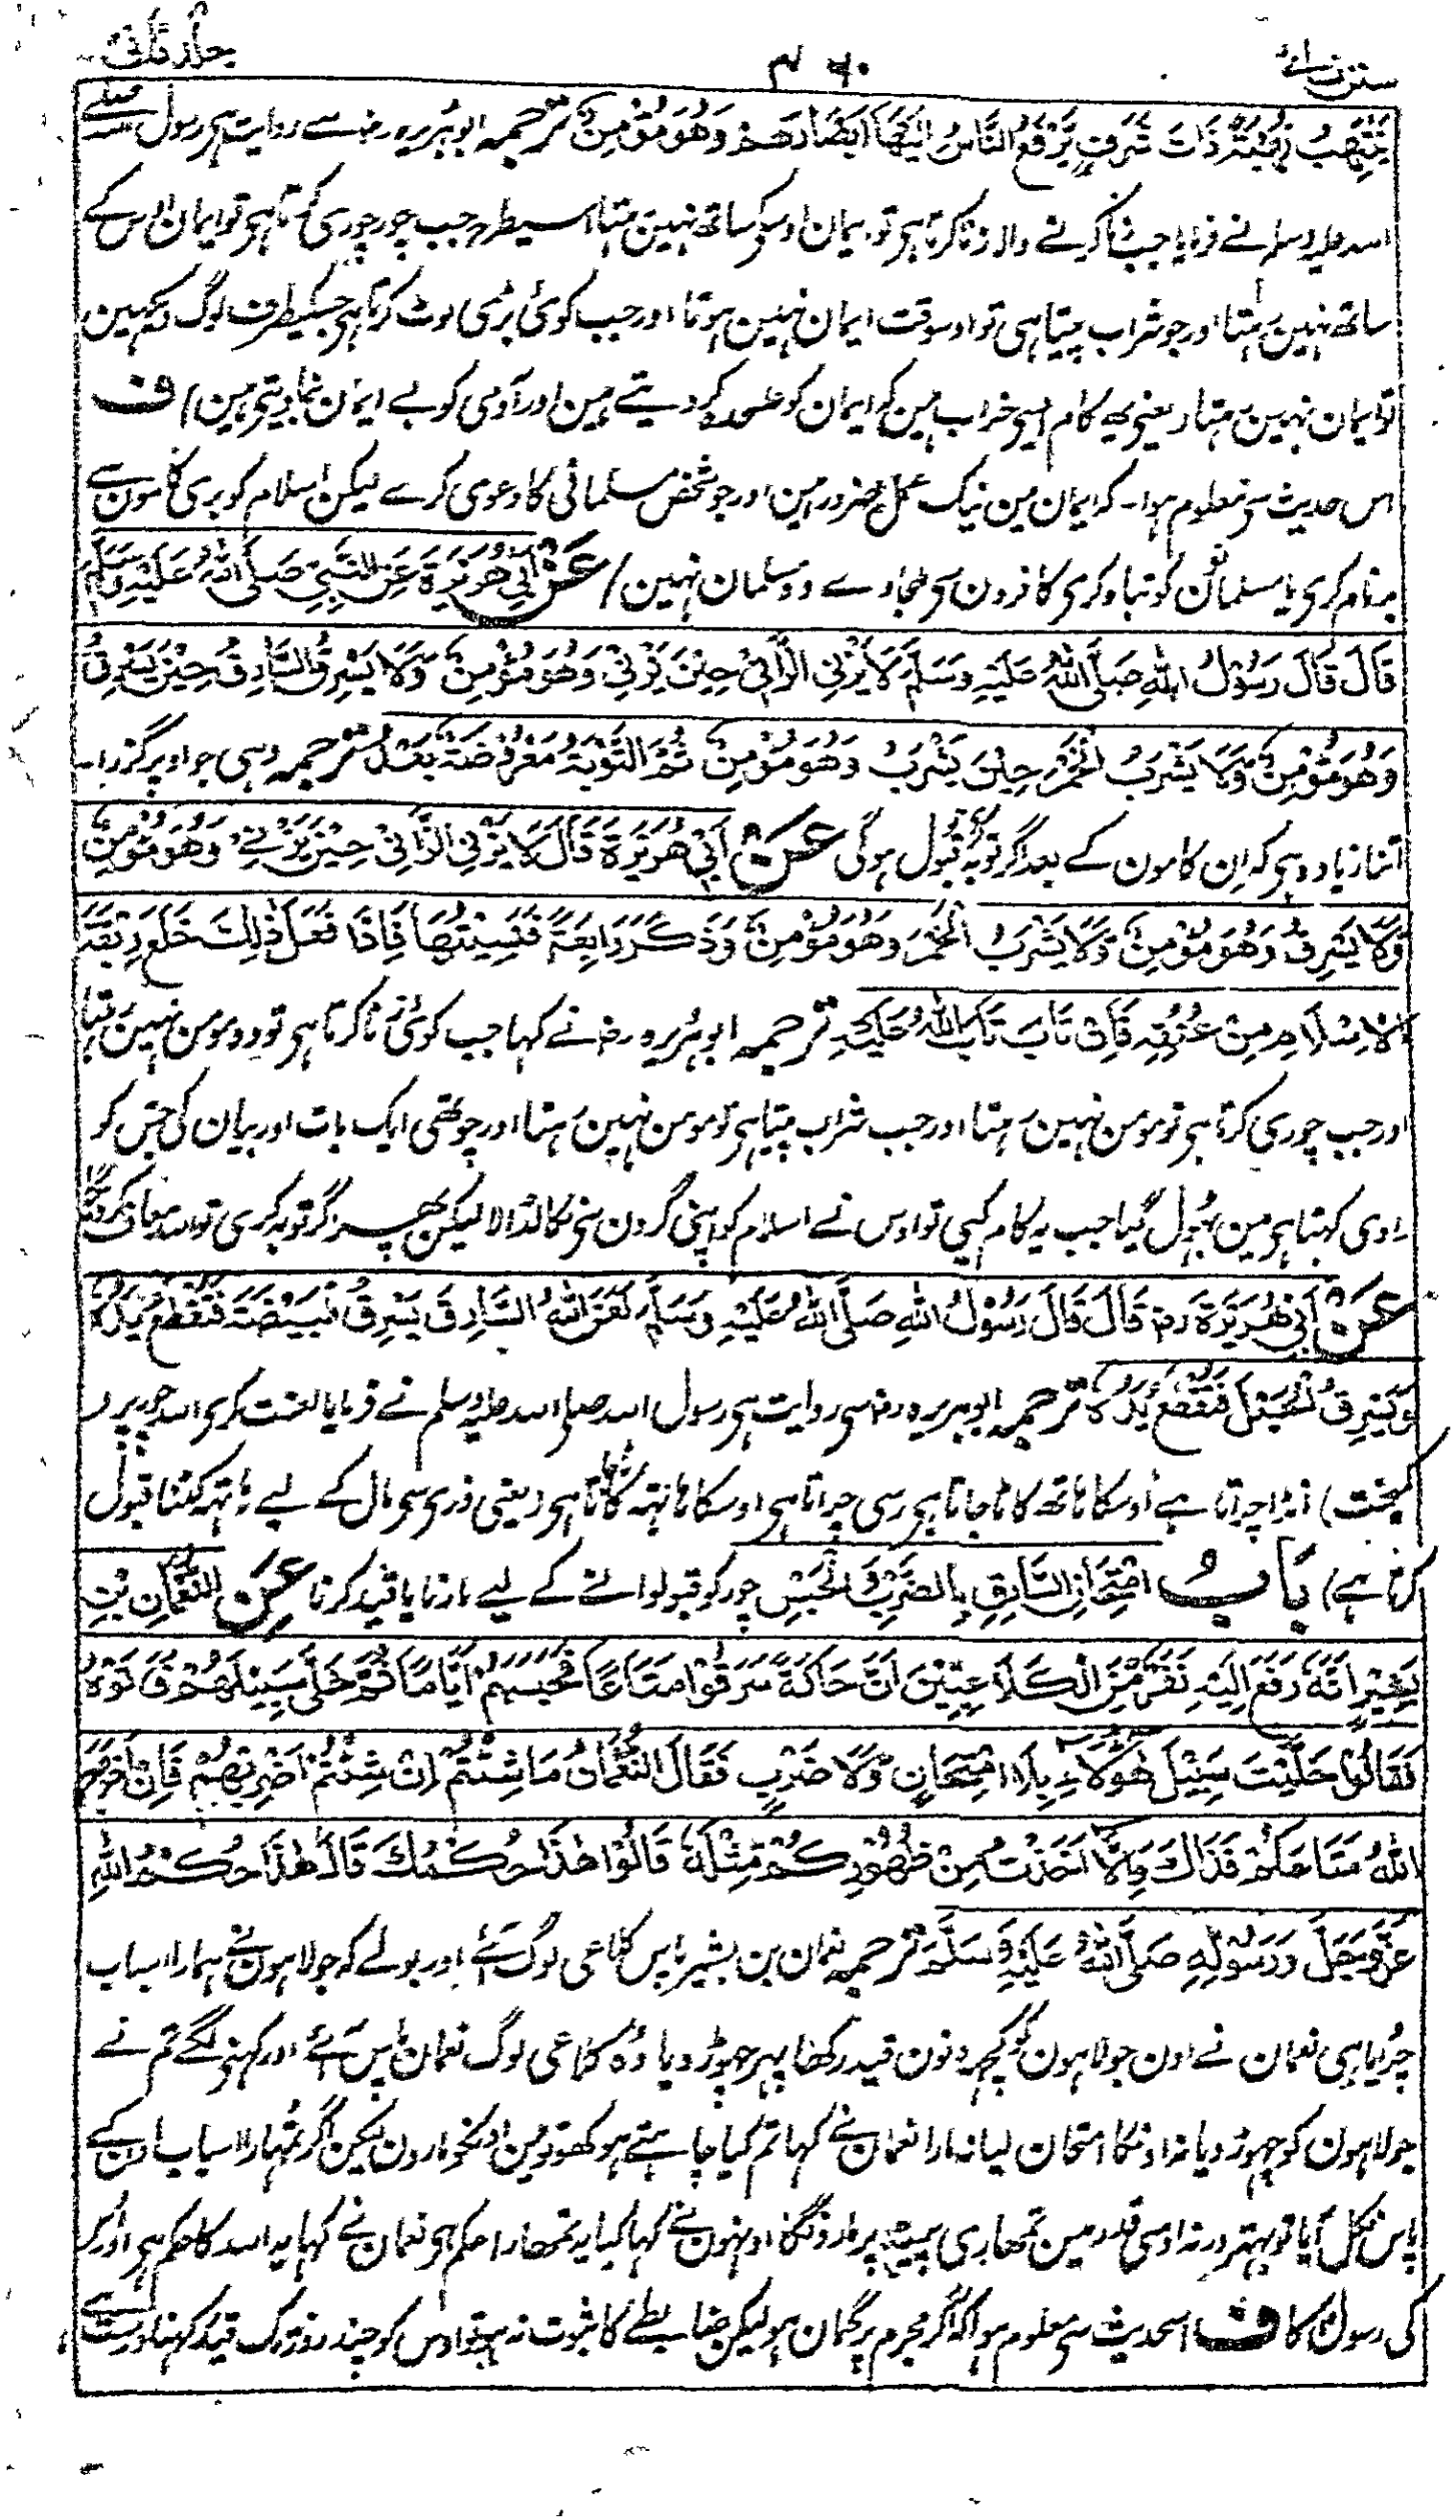 سنن نسائی ۴۶۰ جلد ثانی
يَنْتَهِبُ نُهْبَةً ذَاتَ شَرَفٍ يَرْفَعُ النَّاسُ اِلَيْهَا اَبْصَارَهُمْ وَهُوَ مُؤْمِنٌ ترجمہ ابو ہریرہ رضسے روایت ہی رسول صلے
اسد علیہ وسلم نے فرمایا جب زنا کرنے والا زنا کرتا ہی تو ایمان اوسکے ساتھ نہین رہتا اسیطرح جب چور چوری کرتا ہی تو ایمان اوس کے
ساتھ نہین رہتا اور جو شراب پیتا ہی تو اوسوقت ایمان نہین ہوتا اور جب کوئی بڑی لوٹ کرتا ہی جسکیطرف لوگ دیکہین
تو ایمان نہین رہتا (یعنی یہ کام ایسی خراب ہین کہ ایمان کو علحدہ کر دیتے ہین اور آدمی کو بے ایمان بنا دیتی ہین) ف
اس حدیث سی معلوم ہوا۔ کہ ایمان مین نیک عمل ضرور ہین اور جو شخص مسلمانی کا دعوی کرے لیکن اسلام کو بری کامون سے
بدنام کری یا مسلمانون کو تباہ کری کافرون سی ملجاوے وہ مسلمان نہین / عَنْ اَبِيْ هُرَيْرَةَ عَنِ النَّبِيِّ صَلَّى اللّٰهُ عَلَيْهِ وَسَلَّمَ
قَالَ قَالَ رَسُوْلُ اللّٰهِ صَلَّى اللّٰهُ عَلَيْهِ وَسَلَّمَ لَا يَزْنِي الزَّانِيْ حِيْنَ يَزْنِيْ وَهُوَ مُؤْمِنٌ وَلَا يَسْرِقُ السَّارِقُ حِيْنَ يَسْرِقُ
وَهُوَ مُؤْمِنٌ وَلَا يَشْرَبُ الْخَمْرَ حِيْنَ يَشْرَبُ وَهُوَ مُؤْمِنٌ ثُمَّ التَّوْبَةُ مَعْرُوْضَةٌ بَعْدُ ترجمہ وہی جو اوپر گذرا۔
اتنا زیادہ ہی کہ ان کامون کے بعد اگر توبہ کری قبول ہوگی عَنْ اَبِيْ هُرَيْرَةَ قَالَ لَا يَزْنِي الزَّانِيْ حِيْنَ يَزْنِيْ وَهُوَ مُؤْمِنٌ
وَلَا يَسْرِقُ وَهُوَ مُؤْمِنٌ وَلَا يَشْرَبُ الْخَمْرَ وَهُوَ مُؤْمِنٌ وَذَكَرَ رَابِعَةً فَنَسِيْتُهَا فَاِذَا فَعَلَ ذٰلِكَ خَلَعَ رِبْقَةَ
الْاِسْلَامِ مِنْ عُنُقِهٖ فَاِنْ تَابَ تَابَ اللّٰهُ عَلَيْهِ ترجمہ ابو ہریرہ رضنے کہا جب کوئی زنا کرتا ہی تو وہ مومن نہین رہتا
اور جب چوری کرتا ہی تو مومن نہین رہتا اور جب شراب پیتا ہی تو مومن نہین رہتا اور چوتھی ایک بات اور بیان کی جس کو
راوی کہتا ہی مین بہول گیا جب یہ کام کیی تو اوس نے اسلام کو اپنی گردن سی نکالڈالا لیکن پھر اگر توبہ کری تو اسد معاف کردیگا
عَنْ اَبِيْ هُرَيْرَةَ رض قَالَ قَالَ رَسُوْلُ اللّٰهِ صَلَّى اللّٰهُ عَلَيْهِ وَسَلَّمَ لَعَنَ اللّٰهُ السَّارِقَ يَسْرِقُ الْبَيْضَةَ فَتُقْطَعُ يَدُهٗ
وَيَسْرِقُ الْحَبْلَ فَتُقْطَعُ يَدُهٗ ترجمہ ابو ہریرہ رضسی روایت ہی رسول اسد صلی اسد علیہ وسلم نے فرمایا لعنت کری اسد چور پر (
کمبخت) انڈا چراتا ہے اوسکا ہاتھ کاٹا جاتا ہی رسی چراتا ہی اوسکا ہاتہہ کاٹا جاتا ہی (یعنی ذری سی مال کے لیے ہاتہہ کٹنا قبول
کرتا ہے) بَابُ امْتِحَانِ السَّارِقِ بِالضَّرْبِ وَالْحَبْسِ چور کو قبولوانے کے لیے مارنا یا قید کرنا عَنِ النُّعْمَانِ بْنِ
بَشِيْرٍ اَنَّهٗ رَفَعَ اِلَيْهِ نَفَرٌ مِّنَ الْكَلَاعِيِّيْنَ اَنَّ حَاكَةً سَرَقُوْا مَتَاعًا فَحَبَسَهُمْ اَيَّامًا ثُمَّ خَلّٰى سَبِيْلَهُمْ فَاَتَوْهُ
فَقَالُوْا خَلَّيْتَ سَبِيْلَ هٰؤُلَاءِ بِلَا امْتِحَانٍ وَلَا ضَرْبٍ فَقَالَ النُّعْمَانُ مَا شِئْتُمْ اِنْ شِئْتُمْ اَضْرِبُهُمْ فَاِنْ اَخْرَجَ
اللّٰهُ مَتَاعَكُمْ فَذَاكَ وَاِلَّا اَخَذْتُ مِنْ ظُهُوْرِكُمْ مِثْلَهٗ قَالُوْا هٰذَا حُكْمُكَ قَالَ هٰذَا حُكْمُ اللّٰهِ
عَزَّوَجَلَّ وَرَسُوْلِهٖ صَلَّى اللّٰهُ عَلَيْهِ وَسَلَّمَ ترجمہ نعمان بن بشیر پاس کلاعی لوگ آئے اور بولے کہ جولاہون نے ہمارا اسباب
چرایا ہی نعمان نے اون جولاہون کو کچہہ دنون قید رکھا پہر چہوڑ دیا وہ کلاعی لوگ نعمان پاس آئے اور کہنی لگے تم نے
جولاہون کو چہوڑ دیا نہ اونکا امتحان لیا نہ مارا نعمان نے کہا تم کیا چاہتے ہو کھو تو مین اونکو مارون لیکن اگر تمہارا اسباب اون کے
پاس نکل آیا تو بہتر ورنہ اوسی قدر مین تمہاری پیٹہہ پر مارونگا اونہون نے کہا کیا یہ تمہارا حکم ہی نعمان نے کہا یہ اسد کا حکم ہی اور اس
کی رسول کا ف اسحدیث سی معلوم ہوا کہ اگر مجرم پر گمان ہو لیکن ضابطے کا ثبوت نہ ہو تو اوس کو چند روز تک قید رکہنا درست ہے